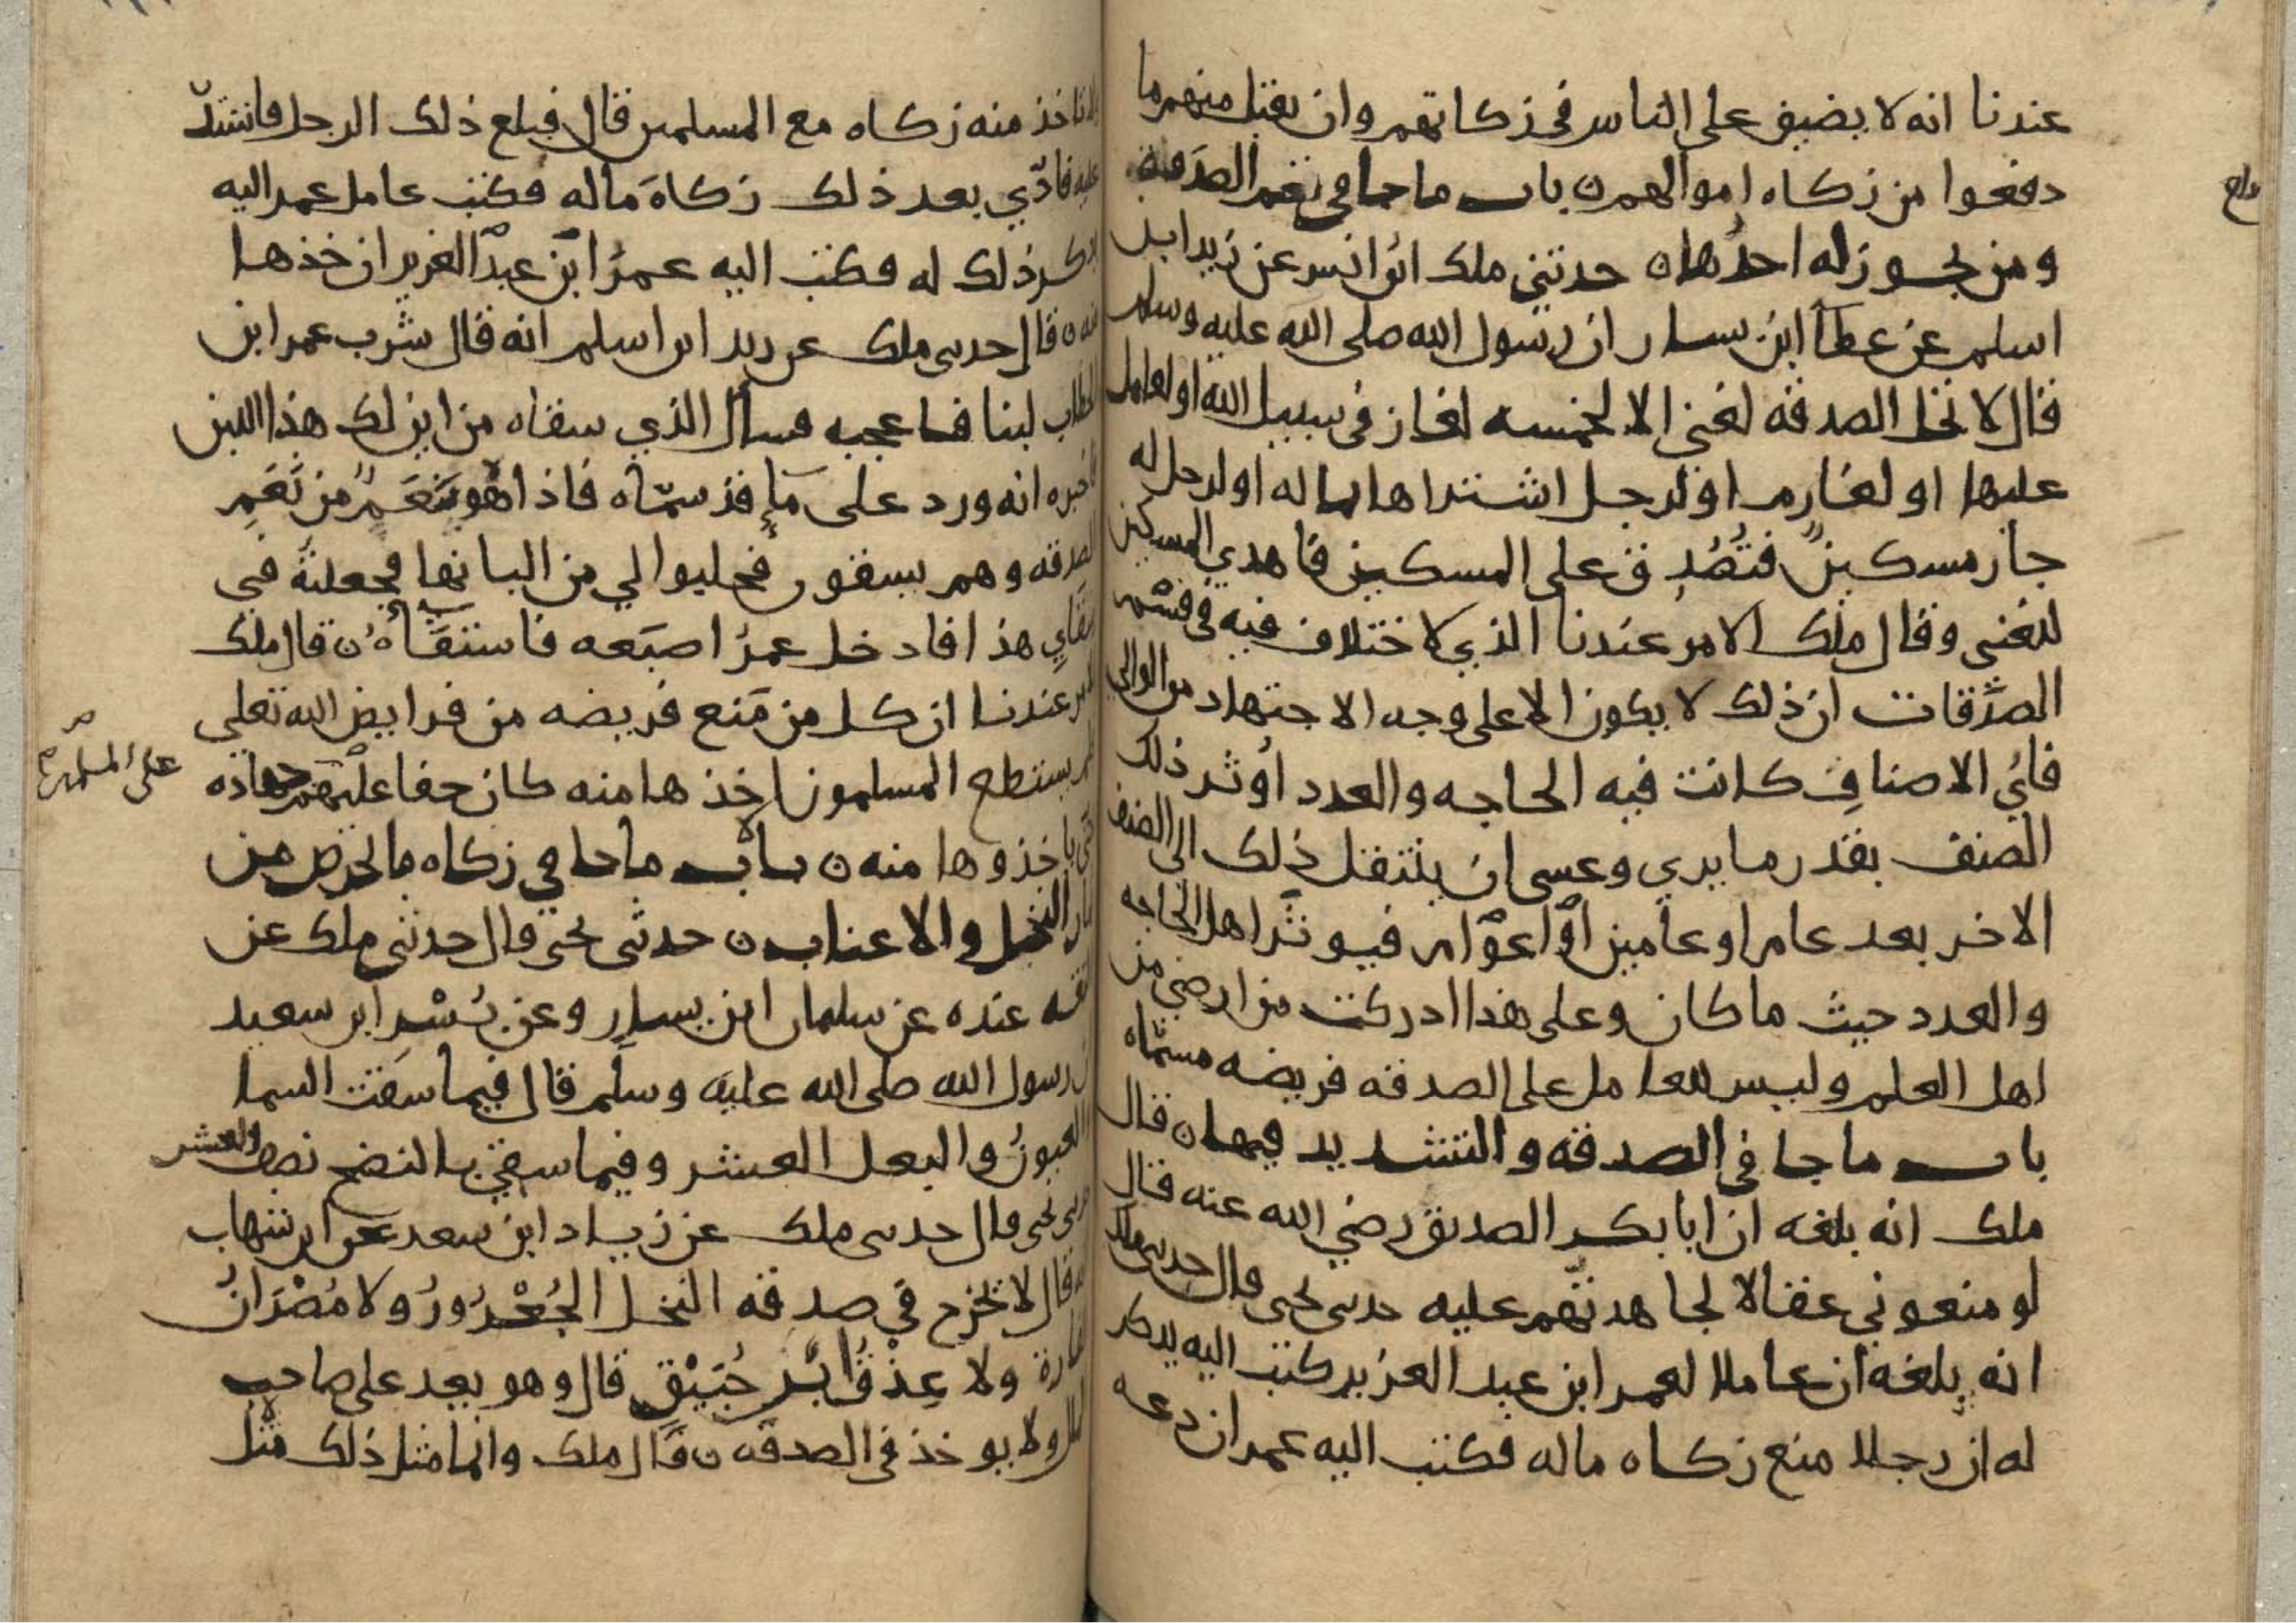 عندنا انه لا يضيق على الناس في زكاتهم وان يقبل منهم ما
دفعوا من زكاه اموالهم ن باب ما جا في نعم الصدقة
ومن يجوز له احدها ن حدثني ملك ابن انس عن زيد ابن
اسلم عن عطا ابن يسار ان رسول الله صلى الله عليه وسلم
قال لا تحل الصدقه لغني الا لخمسه لغاز في سبيل الله او لعامل
عليها او لغارم او لرجل اشتراها بماله او لرجل له
جار مسكين فتصدق على المسكين فاهدي المسكين
للغني وقال ملك الامر عندنا الذي لا ختلاف فيه في قسم
الصدقات ان ذلك لا يكون الا على وجه الاجتهاد من الوالي
فاي الاصناف كانت فيه الحاجه والعدد اوثر ذلك
الصنف بقدر ما يري وعسى ان ينتقل ذلك الى الصنف
الاخر بعد عام او عامين او اعوام فيوثر اهل الحاجه
والعدد حيث ما كان وعلى هذا ادركت من ارضي من
اهل العلم وليس للعامل على الصدقه فريضه مسماه
باب ما جا في الصدقه والتشديد فيها ن قال
ملك انه بلغه ان ابا بكر الصديق رضي الله عنه قال
لو منعوني عقالا لجاهدتهم عليه حدثني يحيى قال حدثني ملك
انه بلغه ان عاملا لعمر ابن عبد العزيز كتب اليه يذكر
له ان رجلا منع زكاه ماله فكتب اليه عمر ان دعه
ولا تاخذ منه زكاه مع المسلمين قال فبلع ذلك الرجل فاشتد
عليه فادي بعد ذلك زكاة ماله فكتب عامل عمر اليه
يذكر ذلك له فكتب اليه عمر ابن عبد العزيز ان خذها
منه ن قال حدثني ملك عن زيد ابن اسلم انه قال شرب عمر ابن
الخطاب لبنا فاعجبه فسأل الذي سقاه من اين لك هذا اللبن
فاخبره انه ورد على ما قد سماه فاذا هو بنعم من نعم
الصدقه وهم يسقون فحلبوا لي من البانها فجعلته في
سقاي هذا فادخل عمر اصبعه فاستقاه ن قال ملك
الامر عندنا ان كل من منع فريضه من فرايض الله تعلى
فلم يستطع المسلمون اخذها منه كان حقا عليهم جهاده
على المسلمين
حتى ياخذوها منه ن باب ما جا في زكاه ما يخرص من
ثمار النخل والاعناب ن حدثني يحيى قال حدثني ملك عن
الثقه عنده عن سليمان ابن يسار وعن بسر ابن سعيد
ان رسول الله صلى الله عليه وسلم قال فيما سقت السما
والعيون والبعل العشر وفيما سقي بالنضح نصف العشر
حدثني يحيى قال حدثني ملك عن زياد ابن سعد عن ابن شهاب
انه قال لا يخرج في صدقه النخل الجعرور ولا مصران
الفارة ولا عذق ابن حبيق قال وهو يعد على صاحب
المال ولا يوخذ في الصدقه ن قال ملك وانما مثل ذلك مثل